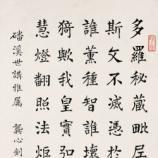 多羅秘藏毗
斯文不滅憑於
誰薰種智誰
猗歟我皇實
慧燈翻照法炬
磻溪世講雅屬 龔心釗